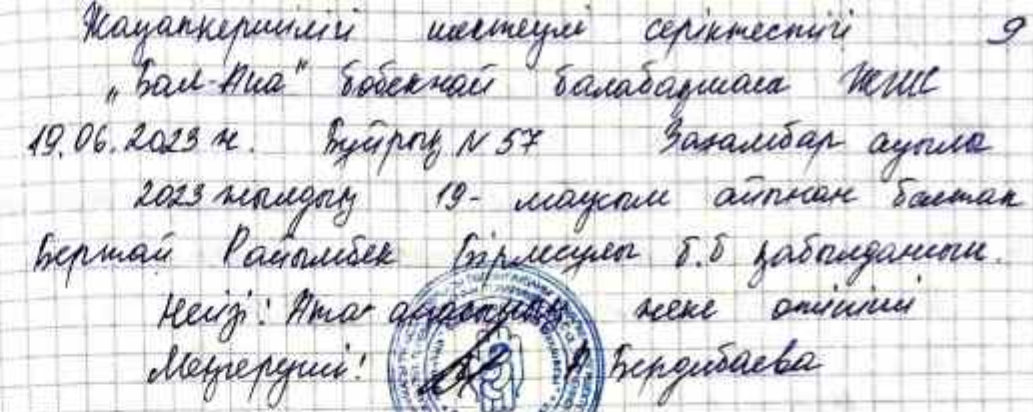 Жауапкершілігі шектеулі серіктестігі 9
„Бал-Ана" бөбекжай балабақшасы ЖШС
19.06.2023 ж. Бұйрық N 57 ауылы
2023 жылдың 19- маусым айынан бастап
Райымбек б.б қабылдансын.
Негізі: Ата анасының жеке өтініші
Меңгеруші: Бердибаева